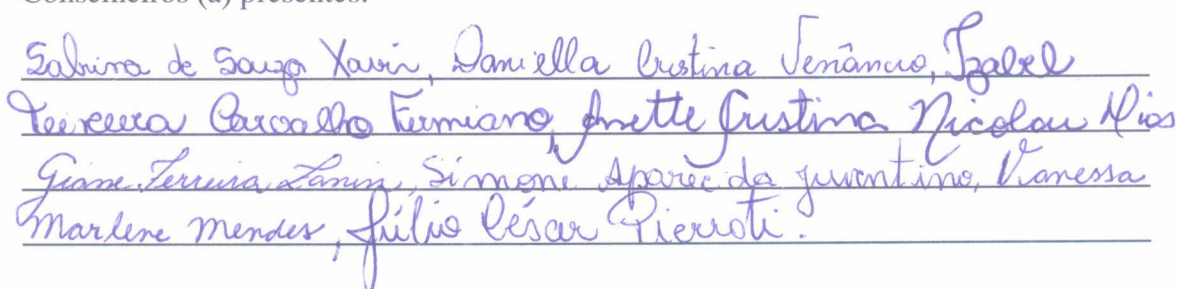 Conselheiros (a) presentes:
Sabrina de Souza Xavier, Daniella Cristina Venâncio, Izabel
Teixeira Carvalho Fermiano, Anette Cristina Nicolau Dias
Giane Ferreira Zanin, Simone Aparecida juventino, Vanessa
Marlene Mendes, Júlio César Pierroti.